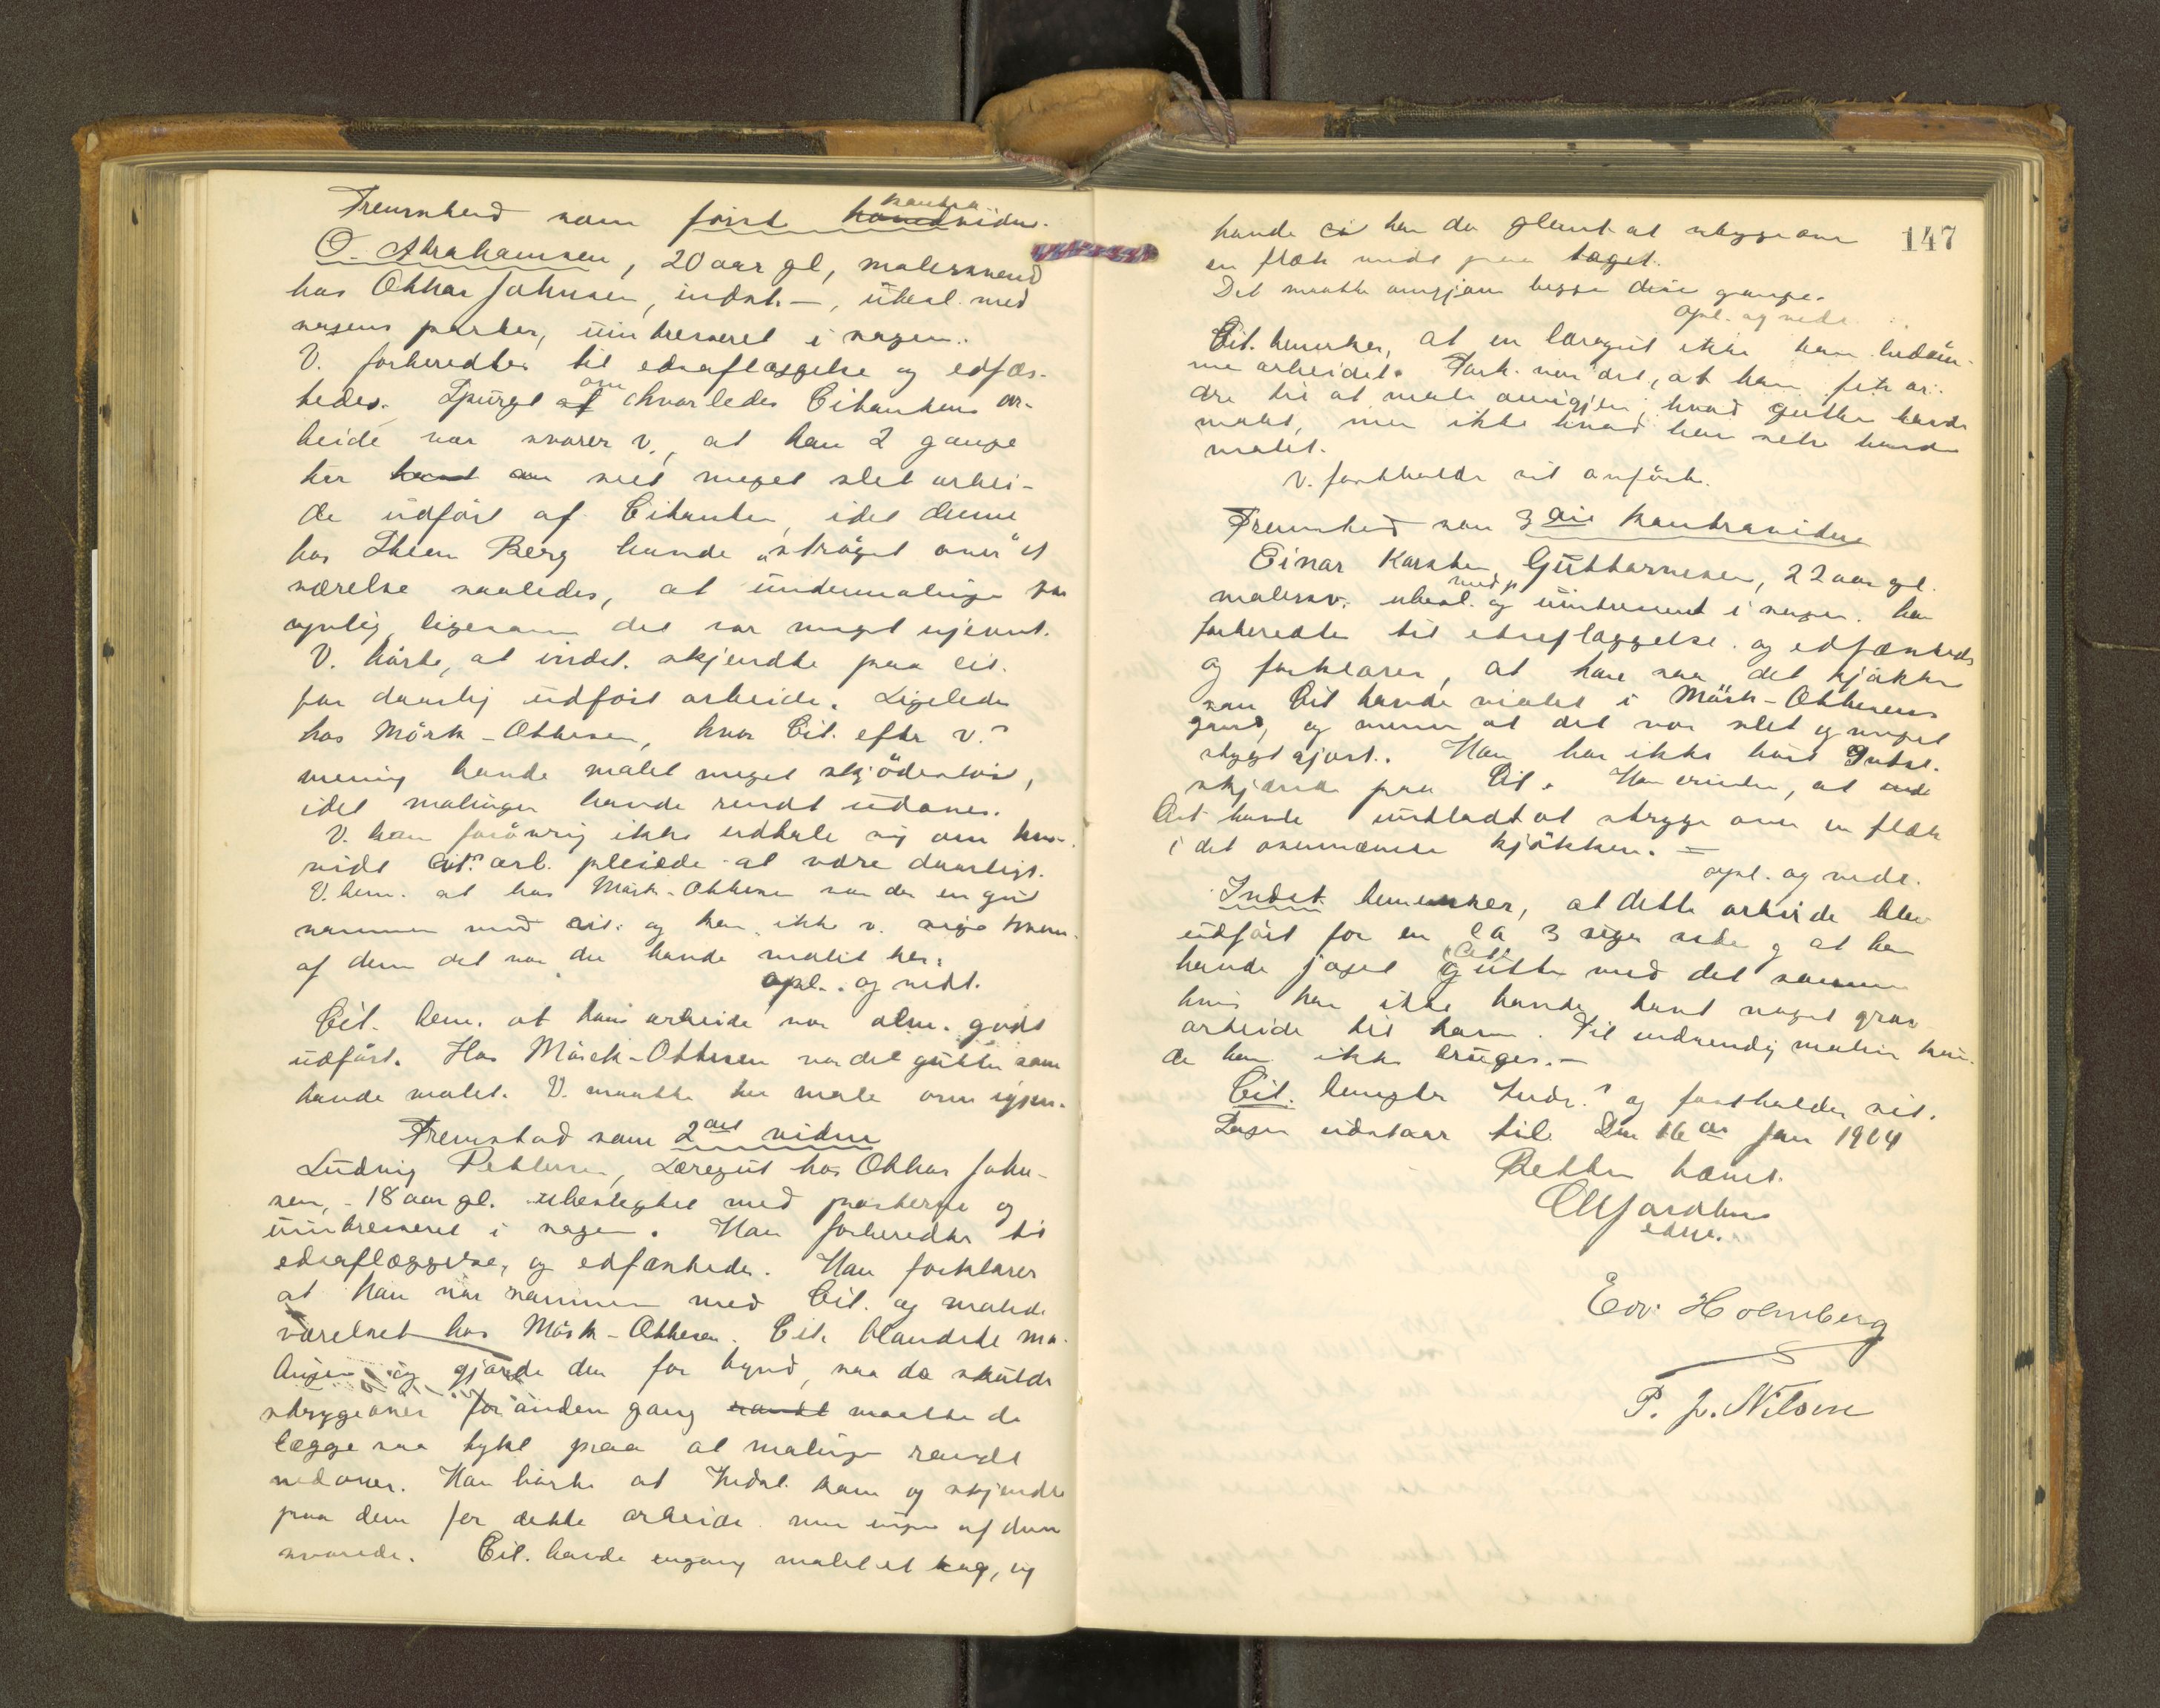 Fremstod som först kontravidne.
O. Abrahamsen, 20 aar gl, malersvend
hos Othar Johnsen, indst. –, ubesl. med
sagens parter, uintresseret i sagen.
V. forberedtes til edsaflæggelse og edfæs-
tedes. Spurgt om hvorledes Citantens ar-
beide var svarer v., at han 2 gange
har seet meget slet arbei-
de udfört af Citanten, idet denne
hos Berg havde "ströget over" et
værelse saaledes, at undermalingen var
synlig, ligesom det var meget ujevnt.
V. hörte, at indst. skjendte paa cit.
for daarlig udfört arbeide. Ligeledes
hos Mörk-Ottesen, hvor Cit. efter v.s
mening havde malet meget skjödeslöst,
idet malingen havde rendt udover.
V. kan forövrig ikke udtale sig om hvor-
vidt Cit.s arb. pleiede at være daarligt.
V. bem. at hos Mörk-Ottesen var der en gut
sammen med cit. og kan ikke v. sige hvem
af dem det var der havde malet her.
opl. og vedt.
Cit. bem. at hans arbeide var alm. godt
udfört. Hos Mörck-Ottesen var det gutten som
havde malet. V. maatte her male om igjen.
Fremstod som 2det vidne
Ludvig Pettersen, Læregut hos Othar John-
sen, - 18 aar gl. ubeslegtet med parterne og
uintresseret i sagen. Han forberedtes til
edsaflæggelse, og edfæstedes. Han forklarer
at han var sammen med Cit. og malede
værelset hos Mörk-Ottesen. Cit. blandede ma-
lingen og gjorde den for tynd, saa da skulde
stryge over for anden gang maatte de
lægge saa tykt paa at malingen rendt
nedover. Han hörte at Indst. kom og skjendte
paa dem for dette arbeide men ingen af dem
svarede. Cit. havde engang malet et tag, og
147
havde cit han da glemt at stryge over
en flæk midt paa taget.
Det maatte omgjöres begge disse gange.
opl. og vedt.
Cit. bemerker, at en læregut ikke kan bedöm-
me arbeidet. Fork. var det, at han fik or-
dre til at male omigjen, hvad gutten havde
malet, men ikke hvad han selv havde
malet.
V. fastholdt sit anförte.
Fremstod som 3die kontravidne
Einar Karsten Guttormsen, 22 aar gl.
malersv. ubesl. med p. og uintresseret i sagen. Han
forberedtes til edsaflæggelse og edfæstedes
og forklarer, at han saa det kjökken
som Cit havde malet i Mörk-Ottesens
gaard, og mener at det var slet og meget
stygt gjort. Han har ikke hört Indst.
skjende paa Cit. Han erindrer, at
Cit havde undladt at stryge over en flæk
i det ovennævnte kjökken. =
opl. og vedt.
Indst. bemerker, at dette arbeide blev
udfört for en ca 3 uger siden og at han
havde jaget Cit. gutten med det samme
hvis han ikke havde havt noget grov
arbeide til ham. Til indvendig maling kun-
de han ikke bruges. –
Cit. benegter Indst.s og fastholder sit.
Sagen udstaar til den 16de Jan 1904
Retten hævet.
edsv.
Edv. Holmberg
P. J. Nilsen